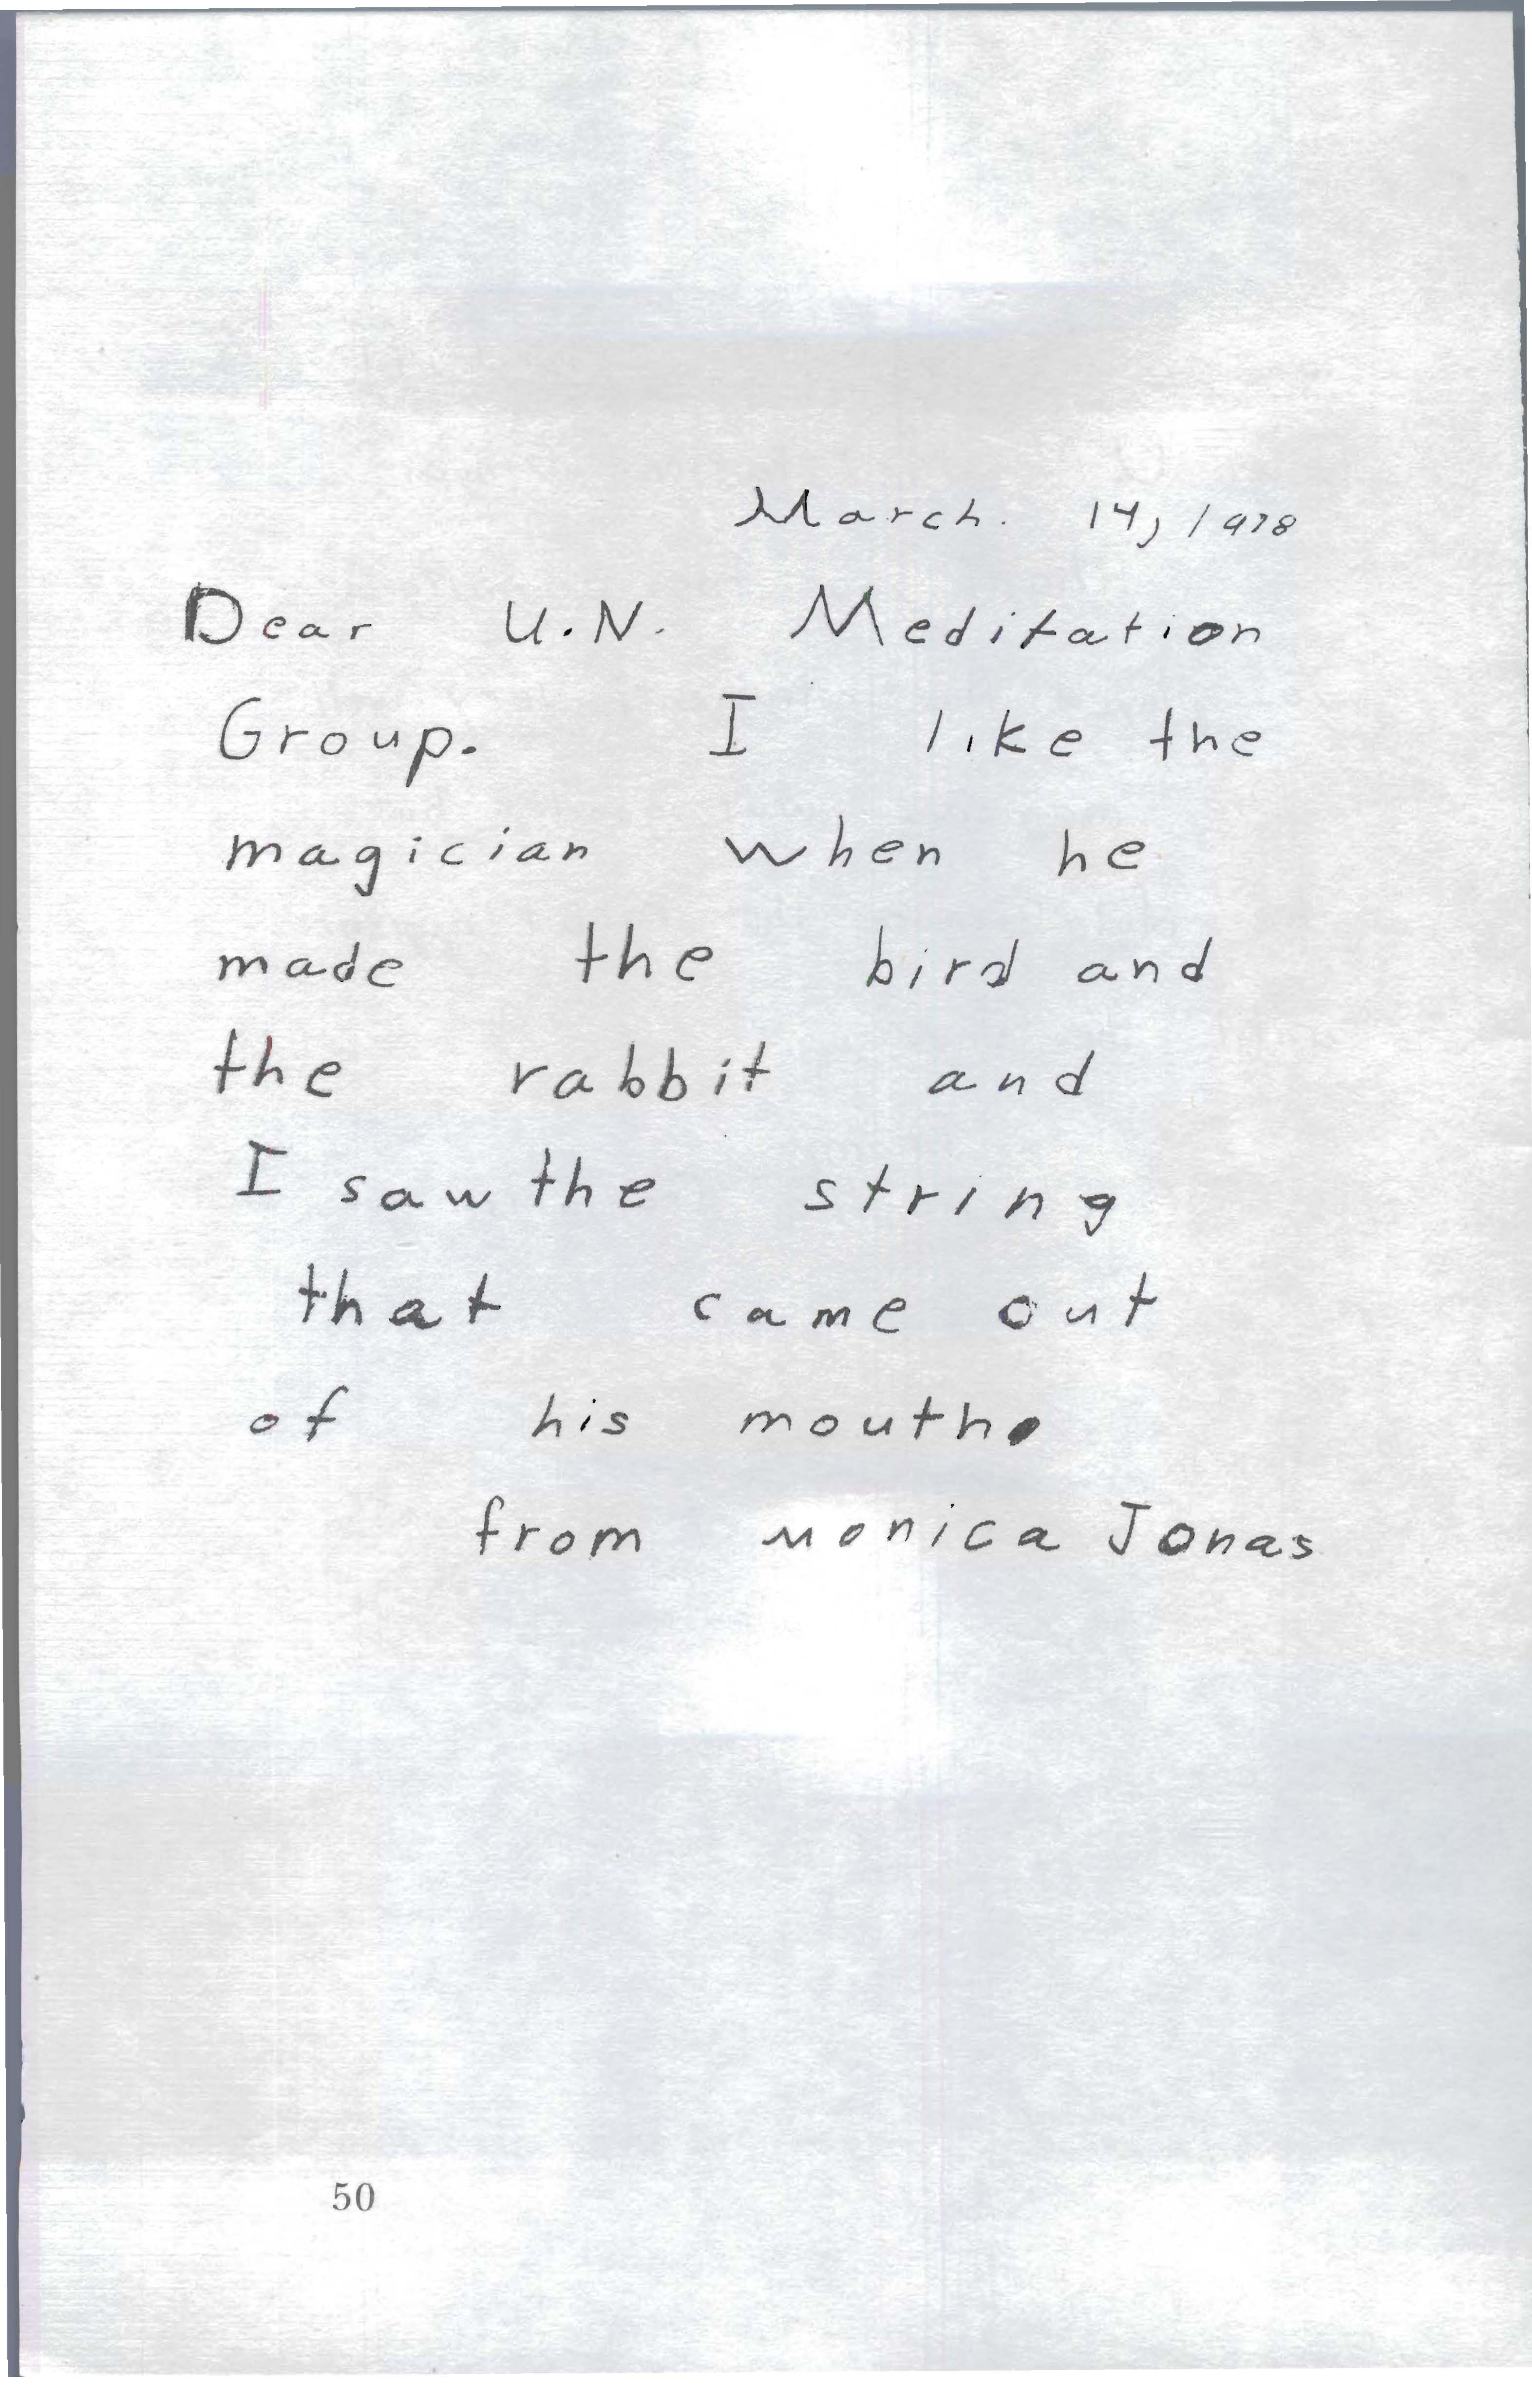 March. 14, 1978
Dear U.N. Meditation
Group. I like the
magician when he
made the bird and
the rabbit and
I saw the string
that came out
of his mouth.
from Monica Jonas
50